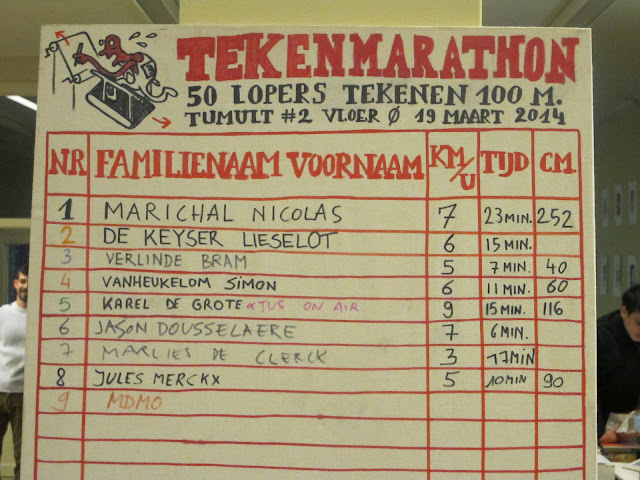 TEKENMARATHON
50 LOPERS TEKENEN 100 M.
TUMULT #2 VLOER Ø 19 MAART 2014
NR FAMILIENAAM VOORNAAM KM/U TIJD CM
1 MARICHAL NICOLAS 7 23 MIN. 252
2 DE KEYSER LIESELOT 6 15 MIN.
3 VERLINDE BRAM 5 7 MIN. 40
4 VANHEUKELOM SIMON 6 11 MIN. 60
5 KAREL DE GROTE & TJS ON AIR 9 15 MIN. 116
6 JASON DOUSSELAERE 7 6 MIN.
7 MARLIES DE CLERCK 3 17 MIN
8 JULES MERCKX 5 10 MIN 90
9 MDMO